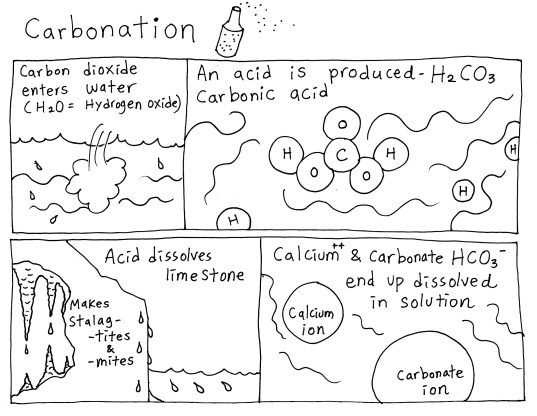 Carbonation
Carbon dioxide
enters water
(H2O = Hydrogen oxide)
An acid is produced - H2CO3
Carbonic acid
O
H C H
O O
H
H
H
Acid dissolves
limestone
Makes
Stalag-
-tites
&
-mites
Calcium++ & Carbonate HCO3-
end up dissolved
in solution
Calcium
ion
Carbonate
ion